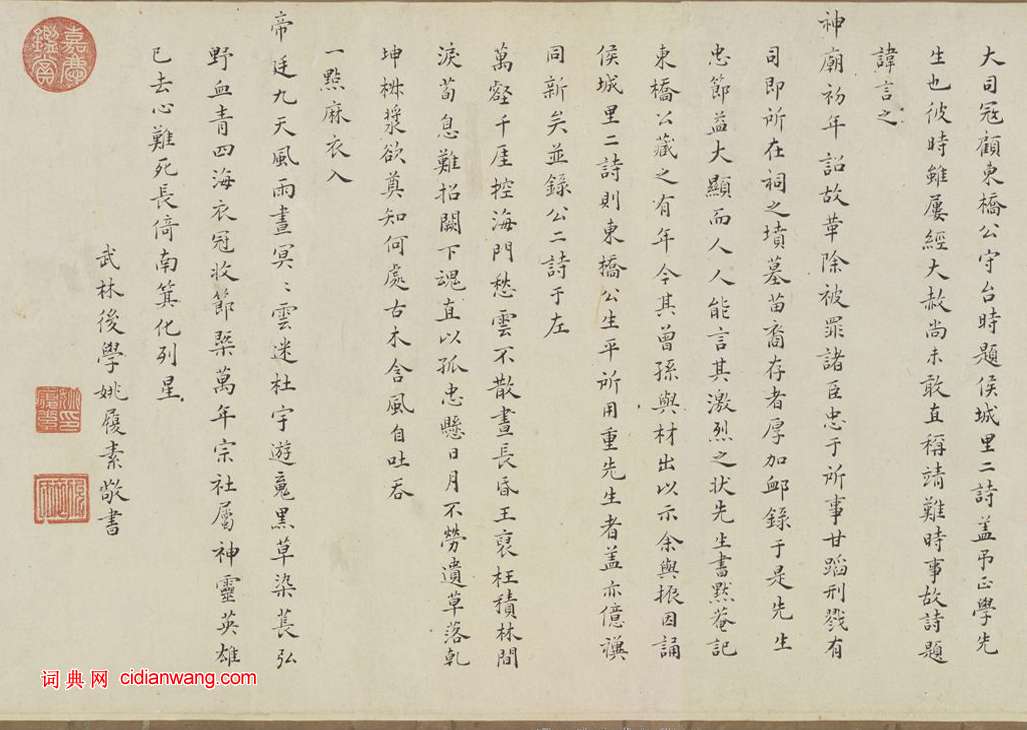 大司冠顧東橋公守台時題侯城里二詩盖吊正學先
生也彼時雖屢經大赦尚未敢直稱靖難時事故詩題
諱言之
神廟初年詔故革除被罪諸臣忠于所事甘蹈刑戮有
司即所在祠之墳墓苗裔存者厚加卹錄于是先生
忠節益大顯而人人能言其激烈之狀先生書默菴記
東橋公藏之有年今其曾孫與材出以示余與振因誦
侯城里二詩則東橋公生平所用重先生者盖亦億禩
同新矣並錄公二詩于左
萬壑千厓控海門愁雲不散晝長昏王裒枉積林間
淚荀息難招闕下魂直以孤忠懸日月不勞遺草落乾
坤椒漿欲奠知何處古木含風自吐吞
一點麻衣入
帝廷九天風雨晝冥〻雲迷杜宇遊䰟黑草染萇弘
野血青四海衣冠收節槩萬年宗社屬神靈英雄
已去心難死長倚南箕化列星
武林後學姚履素敬書
嘉慶鑑賞
词典网 cidianwang.com